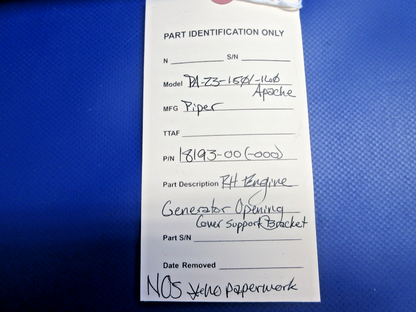 PART IDENTIFICATION ONLY
N S/N
Model PA-23-150/-160
Apache
MFG Piper
TTAF
P/N 18193-00 (-000)
Part Description RH Engine
Generator Opening
Cover Support Bracket
Part S/N
Date Removed
NOS no paperwork